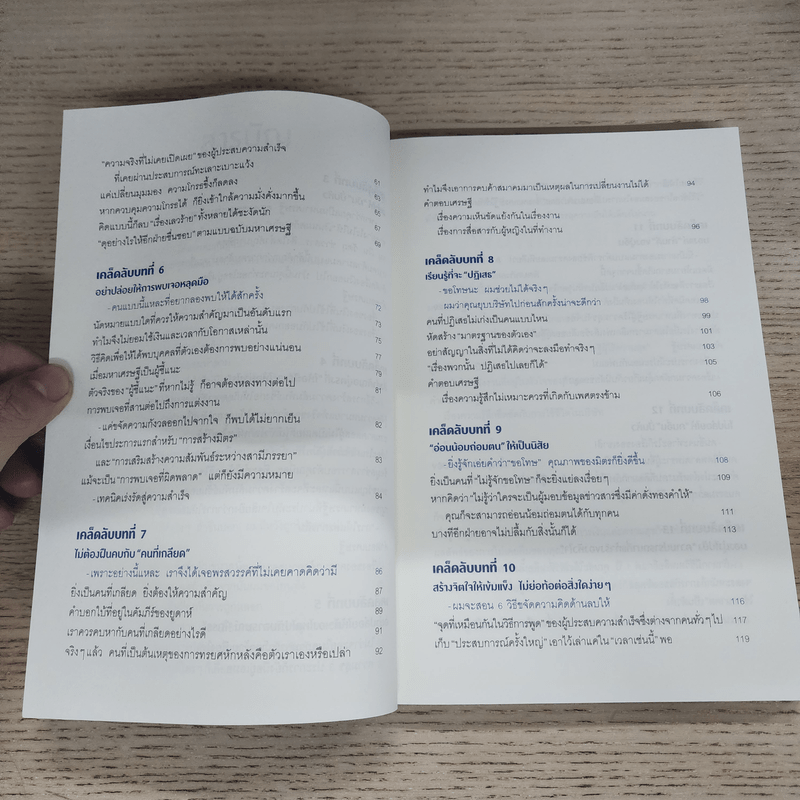 "ความจริงที่ไม่เคยเปิดเผย" ของผู้ประสบความสำเร็จ
ที่เคยผ่านประสบการณ์ทะเลาะเบาะแว้ง 61
แค่เปลี่ยนมุมมอง ความโกรธซึ้งก็ลดลง 65
หากควบคุมความโกรธได้ ก็ยิ่งเข้าใกล้ความมั่งคั่งมากขึ้น 66
คิดแบบนี้ก็ลบ "เรื่องเลวร้าย" ทั้งหลายได้ชะงัดนัก 67
"ดุอย่างไรให้อีกฝ่ายชื่นชอบ" ตามแบบฉบับมหาเศรษฐี 69
เคล็ดลับบทที่ 6
อย่าปล่อยให้การพบเจอหลุดมือ
-คนแบบนี้แหละที่อยากลองพบให้ได้สักครั้ง 72
นัดหมายแบบใดที่ควรให้ความสำคัญมาเป็นอันดับแรก 74
ทำไมจึงไม่ยอมใช้เงินและเวลากับโอกาสเหล่านั้น 75
วิธีคิดเพื่อให้ได้พบบุคคลที่ตัวเองต้องการพบอย่างแน่นอน 77
เมื่อมหาเศรษฐีเป็นผู้ชี้แนะ 79
ตัวจริงของ "ผู้ชี้แนะ" ที่หากไม่รู้ ก็อาจต้องหลงทางต่อไป 81
การพบเจอที่สานต่อไปถึงการแต่งงาน
-แค่ขจัดความกังวลออกไปจากใจ ก็พบได้ไม่ยากเย็น 82
เงื่อนไขประการแรกสำหรับ "การสร้างมิตร"
และ "การเสริมสร้างความสัมพันธ์ระหว่างสามีภรรยา" 83
แม้จะเป็น "การพบเจอที่ผิดพลาด" แต่ก็ยังมีความหมาย
-เทคนิคเร่งรัดสู่ความสำเร็จ 84
เคล็ดลับบทที่ 7
ไม่ต้องฝืนคบกับ "คนที่เกลียด"
-เพราะอย่างนี้แหละ เราจึงได้เจอพรสวรรค์ที่ไม่เคยคาดคิดว่ามี 86
ยิ่งเป็นคนที่เกลียด ยิ่งต้องให้ความสำคัญ 87
คำบอกใบ้ที่อยู่ในคัมภีร์ของยูดาห์ 89
เราควรคบหากับคนที่เกลียดอย่างไรดี 91
จริงๆ แล้ว คนที่เป็นต้นเหตุของการทรยศหักหลังคือตัวเราเองหรือเปล่า 92
ทำไมจึงเอาการคบค้าสมาคมมาเป็นเหตุผลในการเปลี่ยนงานไม่ได้ 94
คำตอบเศรษฐี
เรื่องความเห็นขัดแย้งกันในเรื่องงาน
เรื่องการสื่อสารกับผู้หญิงในที่ทำงาน 96
เคล็ดลับบทที่ 8
เรียนรู้ที่จะ "ปฏิเสธ"
-ขอโทษนะ ผมช่วยไม่ได้จริงๆ
ผมว่าคุณยุบบริษัทไปก่อนสักครั้งน่าจะดีกว่า 98
คนที่ปฏิเสธไม่เก่งเป็นคนแบบไหน 99
หัดสร้าง "มาตรฐานของตัวเอง" 101
อย่าสัญญาในสิ่งที่ไม่ได้คิดว่าจะลงมือทำจริงๆ 103
"เรื่องพวกนั้น ปฏิเสธไปเลยก็ได้" 105
คำตอบเศรษฐี
เรื่องความรู้สึกไม่เหมาะควรที่เกิดกับเพศตรงข้าม 106
เคล็ดลับบทที่ 9
"อ่อนน้อมถ่อมตน" ให้เป็นนิสัย
-ยิ่งรู้จักเอ่ยคำว่า "ขอโทษ" คุณภาพของมิตรก็ยิ่งดีขึ้น 108
ยิ่งเป็นคนที่ "ไม่รู้จักขอโทษ" ก็จะยิ่งแย่ลงเรื่อยๆ 109
หากคิดว่า "ไม่รู้ว่าใครจะเป็นผู้มอบข้อมูลข่าวสารซึ่งมีค่าดั่งทองคำให้"
คุณก็จะสามารถอ่อนน้อมถ่อมตนได้กับทุกคน 111
บางทีอีกฝ่ายอาจไม่ปลื้มกับสิ่งนั้นก็ได้ 113
เคล็ดลับบทที่ 10
สร้างจิตใจให้เข้มแข็ง ไม่ย่อท้อต่อสิ่งใดง่ายๆ
-ผมจะสอน 6 วิธีขจัดความคิดด้านลบให้ 116
"จุดที่เหมือนกันในวิธีการพูด" ของผู้ประสบความสำเร็จซึ่งต่างจากคนทั่วๆ ไป 117
เก็บ "ประสบการณ์ครั้งใหญ่" เอาไว้แค่ใน "เวลาเช่นนี้" พอ 119